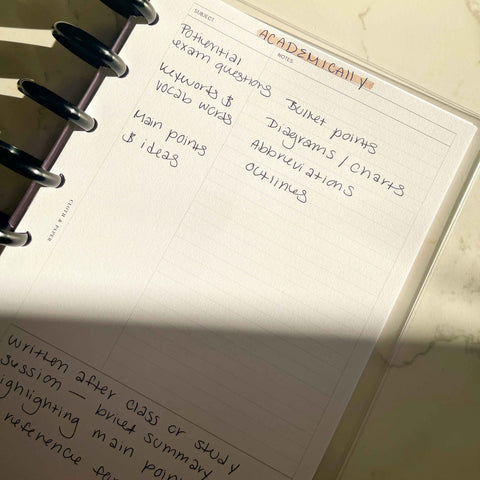 SUBJECT
ACADEMICALLY
NOTES
Pothential
exam questions
keywords &
vocab words
Main points
& ideas
Bullet points
Diagrams / charts
Abbreviations
outlines
CLOTH & PAPER
written after class or study
session — brief summary
highlighting main
reference